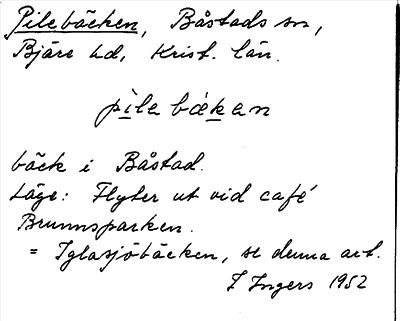 Pilebäcken, Båstads sn,
Bjäre hd, Krist. län.
pìle bækan
bäck i Båstad.
Läge: Flyter ut vid café
Brunnsparken.
= Iglasjöbäcken, se denna art.
I Ingers 1952